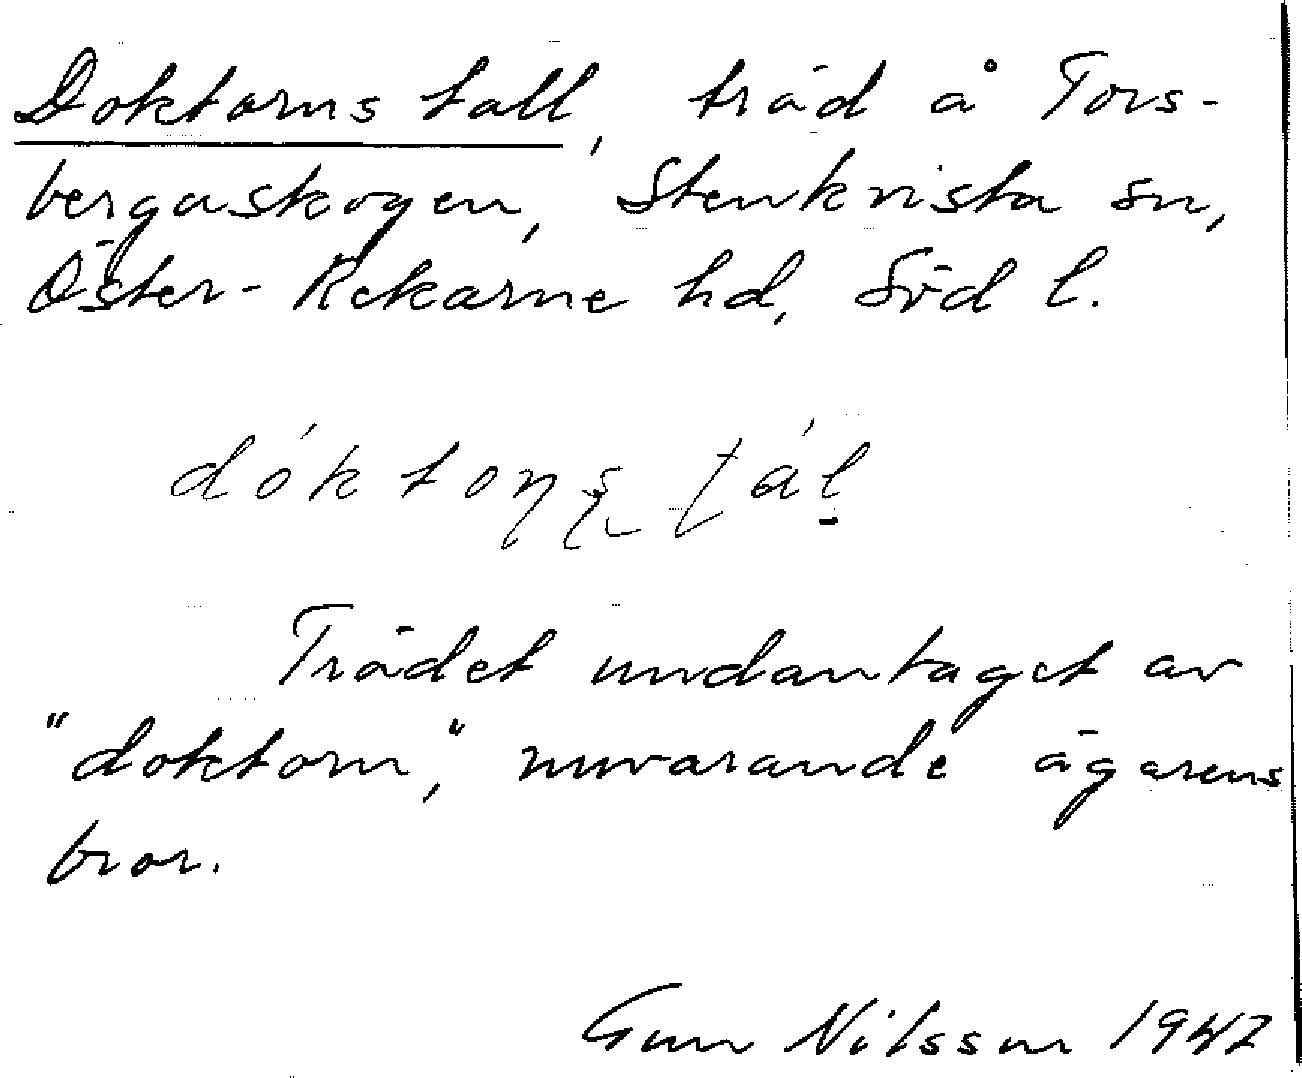 Doktorns tall, träd å Tors-
bergaskogen, Stenkvista sn,
Öster-Rekarne hd, Söd l.
Trädet undantaget av
"doktorn," nuvarande ägarens
bror.
Gun Nilsson 1947